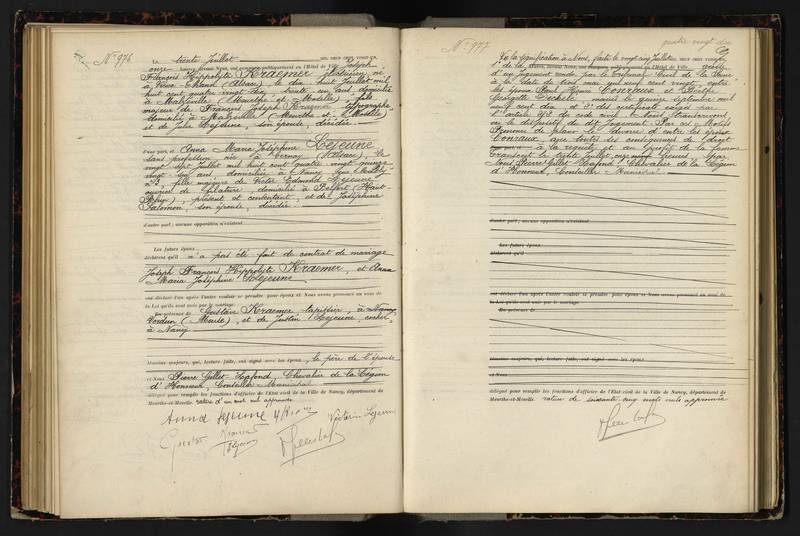 N° 976
Le trente Juillet mil neuf cent vingt un,
onze heures, devant Nous, ont comparu publiquement en l'Hôtel de Ville, Joseph
François Hippolyte Kraemer
à Vieux-Thann (Alsace), le dix huit Juillet mil
huit cent quatre vingt dix, trente un ans, domicilié
à Malzéville (Meurthe et Moselle), fils
majeur de François Joseph Kraemer,
domicilié à Malzéville (Meurthe et Moselle)
et de Julie Lejeune, son épouse, décédée
d'une part, et Anna Maria Joséphine Lejeune
sans profession née à Cernay (Alsace), le
vingt sept Juillet mil huit cent quatre vingt
ans, domiciliée à Nancy, rue
n° 3, fille majeure de Victor Edmond Lejeune
ouvrier de filature, domicilié à Belfort (Haut
Rhin), présent et consentant, et de Joséphine
Salomon, son épouse, décédée
d'autre part; aucune opposition n'existant
Les futurs époux
déclarent qu'il n'a pas été fait de contrat de mariage
Joseph François Hippolyte Kraemer, et Anna
Maria Joséphine Lejeune
ont déclaré l'un après l'autre vouloir se prendre pour époux et Nous avons prononcé au nom de
la Loi qu'ils sont unis par le mariage.
En présence de Gustave Kraemer tapissier, à
Verdun (Meuse), et de Justin Lejeune,
à Nancy
témoins majeurs, qui, lecture faite, ont signé avec les époux, le père de l'épouse
et Nous Pierre Gillet Lafond, Chevalier de la Légion
d'Honneur, Conseiller Municipal
délégué pour remplir les fonctions d'officier de l'Etat civil de la Ville de Nancy, département de
Meurthe-et-Moselle.
Anna Lejeune
N° 977
quatre vingt dix
Vu la signification à Nous, faite le vingt cinq Juillet mil neuf cent vingt un
1° de la
d'un jugement rendu par le Tribunal civil de la Seine
à la date de trois mai mil neuf cent vingt, entre
les époux Paul Henri Conraux et Berthe
Georgette mariés le quinze septembre mil
neuf cent dix et 2° des certificats exigés par
l'article 252 du code civil, Nous transcrivons
ici le dispositif du dit Jugement. Par ces Motifs
Prononce de plano le divorce d'entre les époux
Conraux, avec toutes les conséquences de droit
à la requête et au profit de la femme
Transcrit le trente Juillet, onze heures, par
Nous Pierre Gillet Lafond, Chevalier de la Légion
d'Honneur, Conseiller Municipal
d'autre part; aucune opposition n'existant
Les futurs époux
déclarent qu'il
ont déclaré l'un après l'autre vouloir se prendre pour époux et Nous avons prononcé au nom de
la Loi qu'ils sont unis par le mariage.
En présence de
témoins majeurs, qui, lecture faite, ont signé avec les époux
et Nous
délégué pour remplir les fonctions d'officier de l'Etat civil de la Ville de Nancy, département de
Meurthe-et-Moselle. rature de soixante cinq mots nuls approuvée